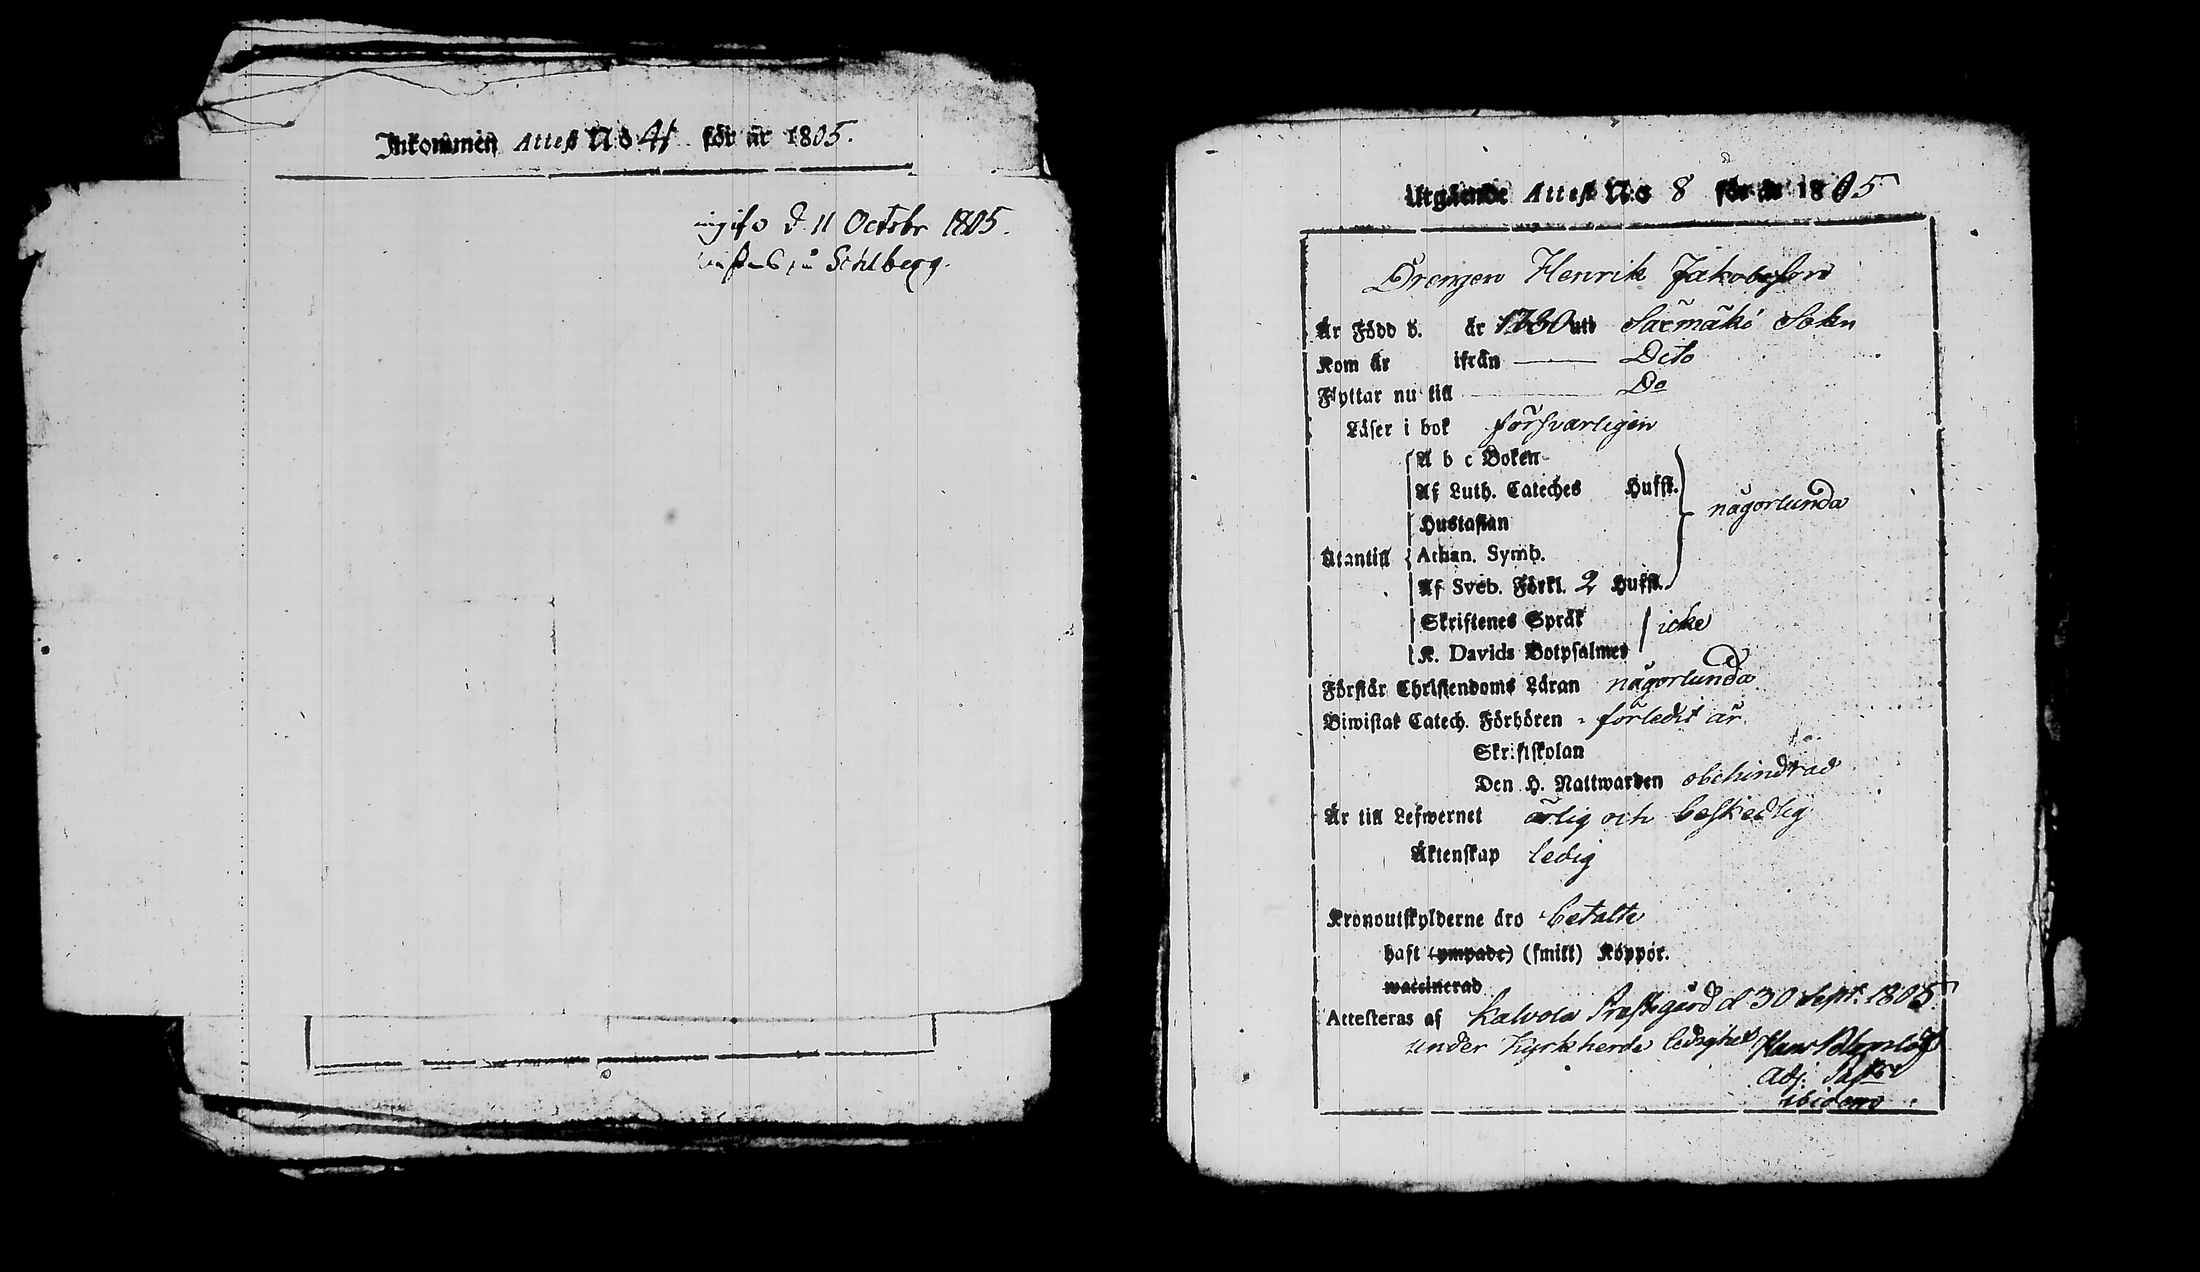 Inkommen Attest No 41 för år 1805.
d. 11 Octobr 1805.
Utgående Attest No 8 för år 1805
Drengen Henrik Jakobsson
Är Född d. år 1780 uti Säxmäki Sokn
Kom år ifrån Dito
Flyttar nu till Do
Läser i bok försvarligen
A b c Boken
Af Luth. Cateches Hufst.
Hustaflan
någorlunda
Utantill Athan. Symb.
Af Sveb. Förkl. 2 Hufst.
Skriftenes Språk
icke
K. Davids Botpsalmer
Förstår Christendoms Läran någorlunda
Biwistat Catech. Förhören förledit år
Skriftskolan
Den H. Nattwarden obehindrad
Är till Lefwernet ärlig och beskedlig
Äktenskap ledig
Kronoutskylderne äro betalte
haft (ympade) (smitt) Koppor.
waccinerad
Attesteras af Kalvola Prästgård d 30 Sept. 1805
under Kyrkherde ledighet
Adj. Past.
ibidem